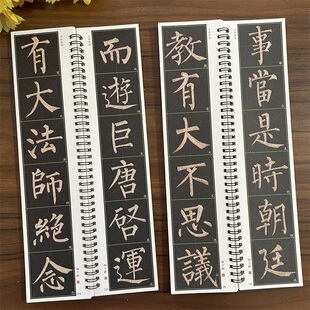 有大法師絕念
而遊巨唐啓運
教有大不思議
事當是時朝廷